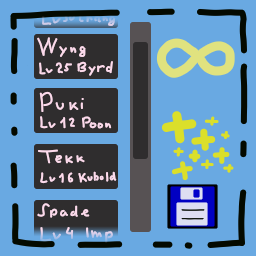 Wyng
Lv 25 Byrd
Puki
Lv 12 Poon
Tekk
Lv 16 Kubold
Spade
Lv 4 Imp